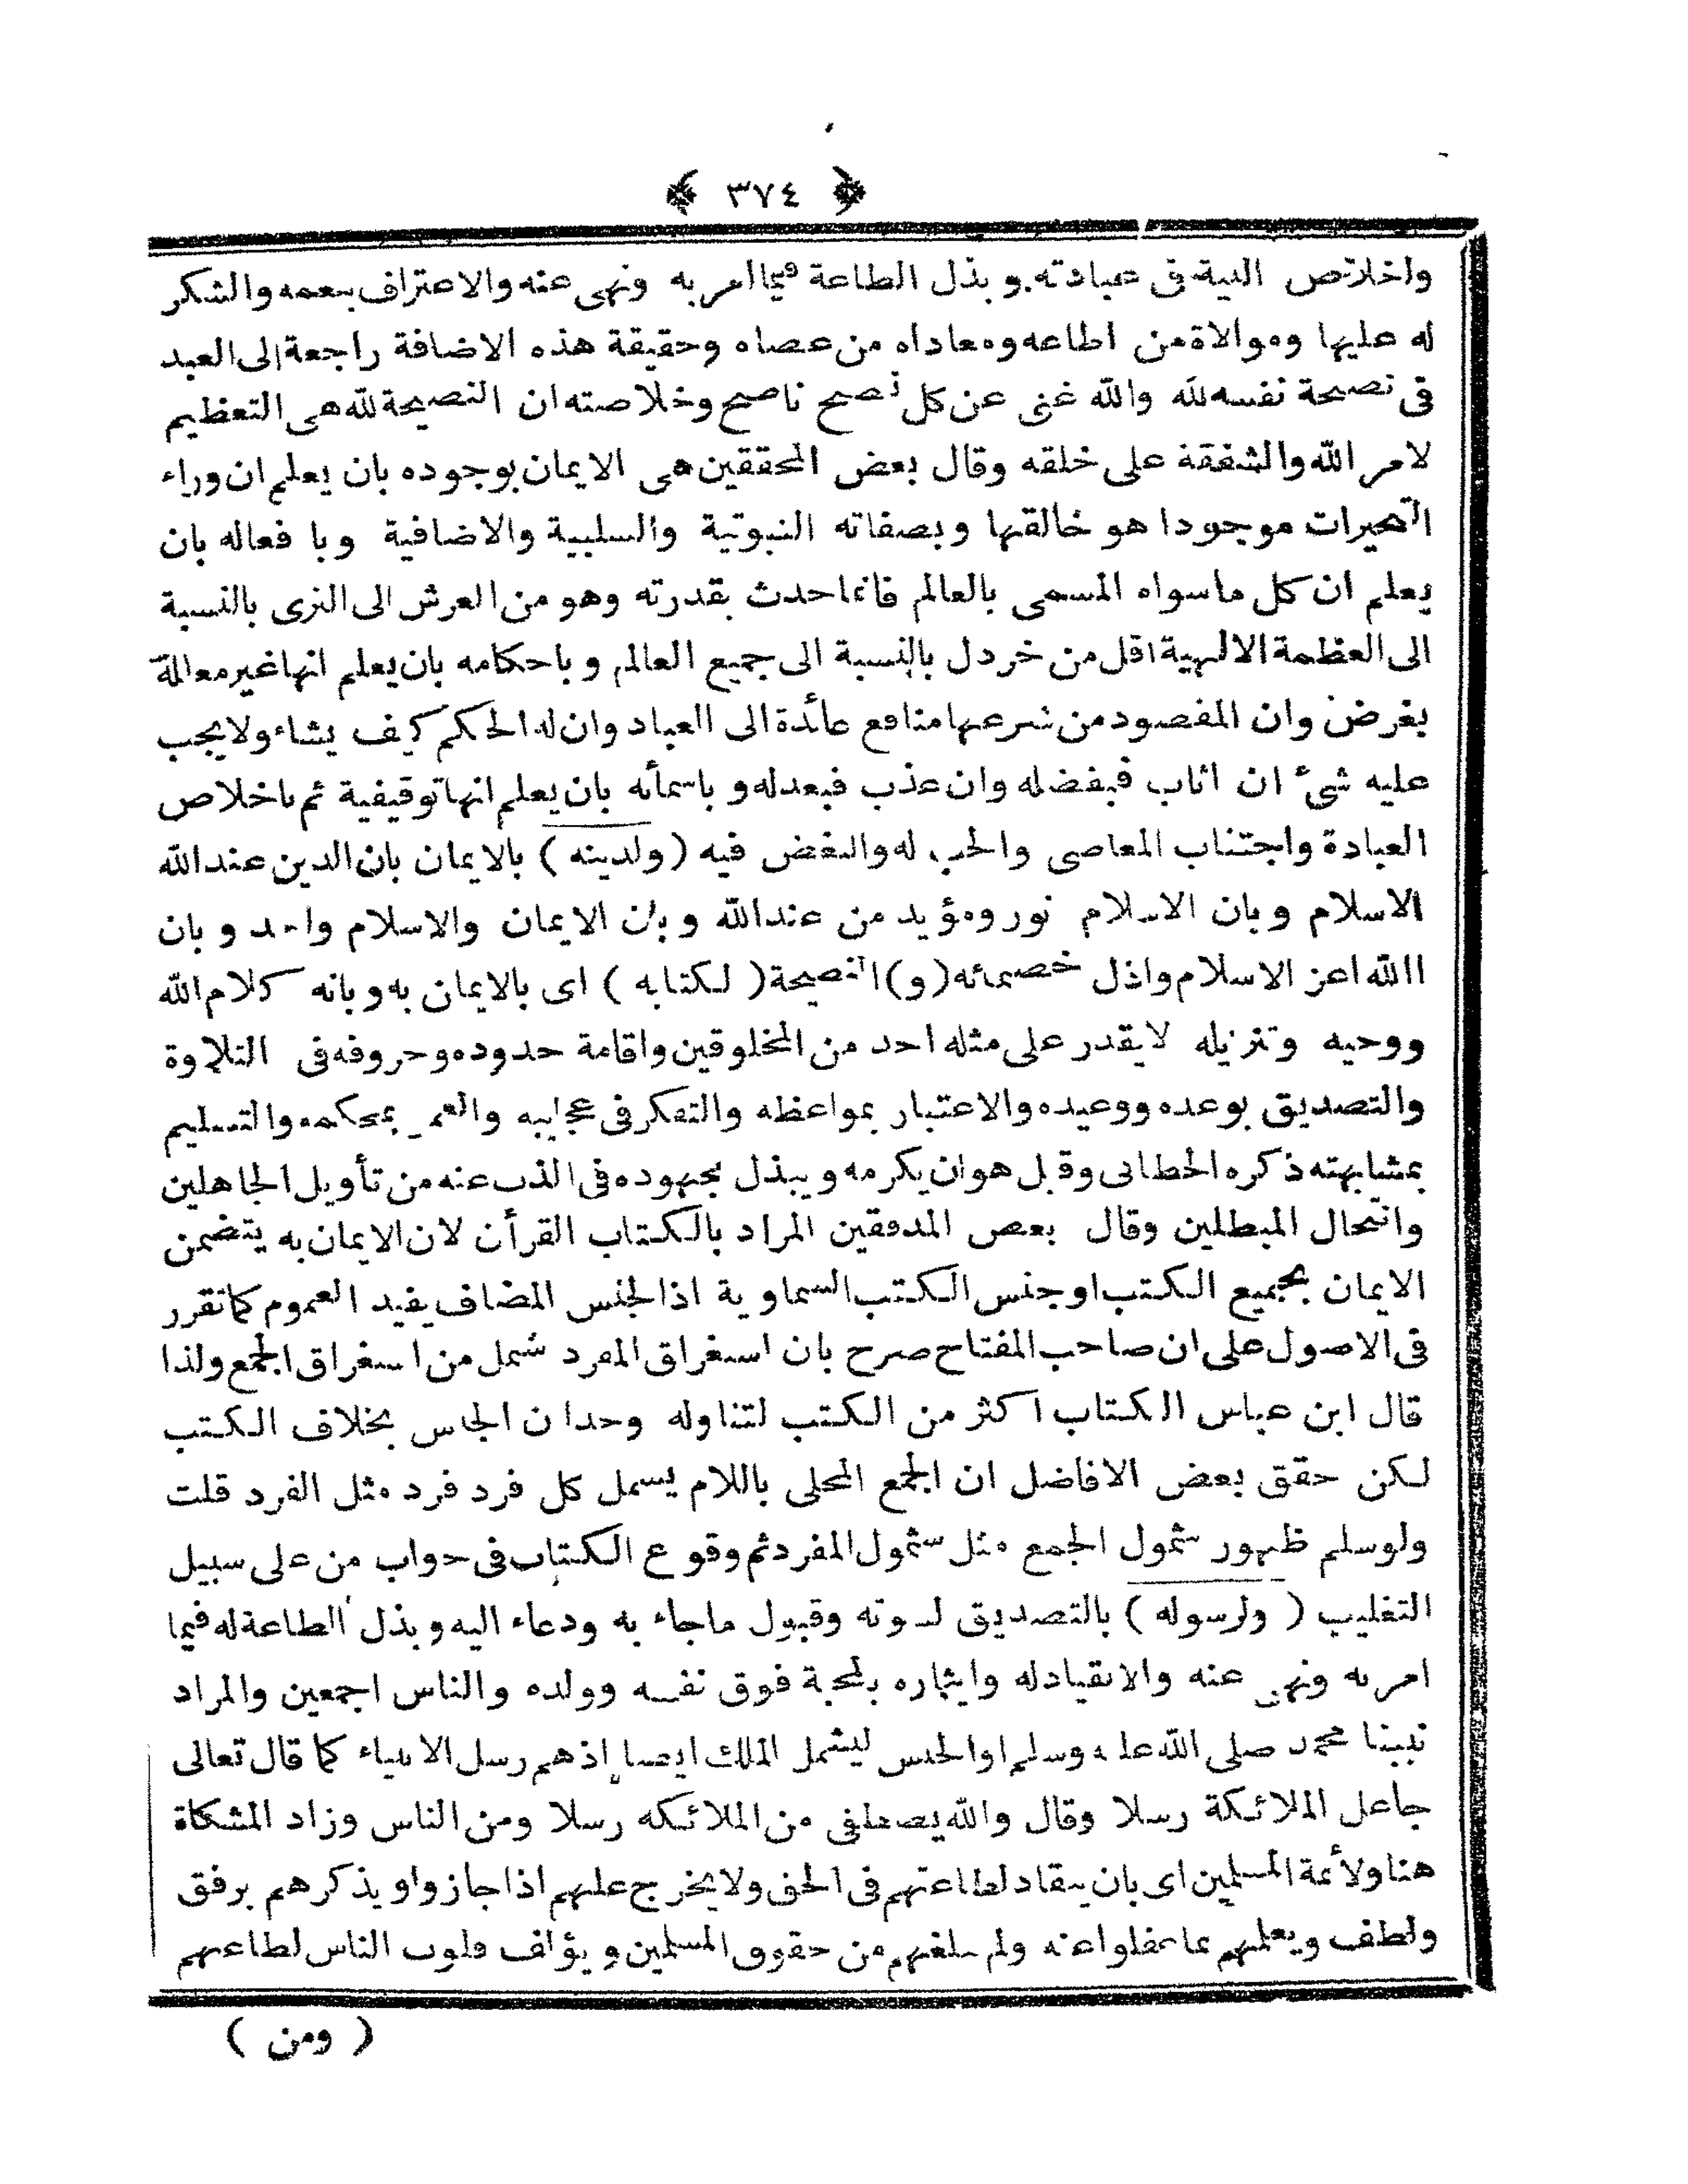 ﴿ ٣٧٤ ﴾
واخلاص النية فى عبادته وبذل الطاعة فيما امر به ونهى عنه والاعتراف بنعمه والشكر
له عليها وموالاة من اطاعه ومعاداه من عصاه وحقيقة هذه الاضافة راجعة الى العبد
فى نصيحة نفسه لله والله غنى عن كل نصح ناصح وخلاصته ان النصيحة لله هى التعظيم
لامر الله والشفقة على خلقه وقال بعض المحققين هى الايمان بوجوده بان يعلم ان وراء
المتحيرات موجودا هو خالقها وبصفاته الثبوتية والسلبية والاضافية وبا فعاله بان
يعلم ان كل ماسواه المسمى بالعالم فانما حدث بقدرته وهو من العرش الى الثرى بالنسبة
الى العظمة الالهية اقل من خردل بالنسبة الى جميع العالم وباحكامه بان يعلم انها غير معللة
بغرض وان المقصود من شرعها منافع عائدة الى العباد وان له الحكم كيف يشاء ولا يجب
عليه شئ ان اثاب فبفضله وان عذب فبعدله وباسمائه بان يعلم انها توقيفية ثم باخلاص
العبادة واجتناب المعاصى والحب له والبغض فيه (ولدينه) بالايمان بان الدين عند الله
الاسلام وبان الاسلام نور ومؤيد من عند الله وبان الايمان والاسلام واحد وبان
الله اعز الاسلام واذل خصمائه (و) النصيحة (لكتابه) اى بالايمان به وبانه كلام الله
ووحيه وتنزيله لايقدر على مثله احد من المخلوقين واقامة حدوده وحروفه فى التلاوة
والتصديق بوعده ووعيده والاعتبار بمواعظه والتفكر فى عجايبه والعمل بمحكمه والتسليم
بمتشابهته ذكره الخطابى وقيل هو ان يكرمه ويبذل مجهوده فى الذب عنه من تأويل الجاهلين
وانتحال المبطلين وقال بعض المدققين المراد بالكتاب القرأن لان الايمان به يتضمن
الايمان بجميع الكتب او جنس الكتب السماوية اذ الجنس المضاف يفيد العموم كما تقرر
فى الاصول على ان صاحب المفتاح صرح بان استغراق المفرد شمل من استغراق الجمع ولذا
قال ابن عباس الكتاب اكثر من الكتب لتناوله وحدان الجنس بخلاف الكتب
لكن حقق بعض الافاضل ان الجمع المحلى باللام يشمل كل فرد فرد مثل الفرد قلت
ولو سلم ظهور شمول الجمع مثل شمول المفرد ثم وقوع الكتاب فى جواب من على سبيل
التغليب (ولرسوله) بالتصديق لنبوته وقبول ماجاء به ودعاء اليه وبذل الطاعة له فيما
امر به ونهى عنه والانقياد له وايثاره بالمحبة فوق نفسه وولده والناس اجمعين والمراد
نبينا محمد صلى الله عليه وسلم او الجنس ليشمل الملك ايضا اذ هم رسل الانبياء كما قال تعالى
جاعل الملائكة رسلا وقال والله يصطفى من الملائكه رسلا ومن الناس وزاد المشكاة
هنا ولأئمة المسلمين اى بان ينقاد لطاعتهم فى الحق ولا يخرج عليهم اذا جازوا ويذكرهم برفق
ولطف ويعلمهم بما غفلوا عنه ولم يبلغهم من حقوق المسلمين ويؤلف قلوب الناس لطاعتهم
( ومن )